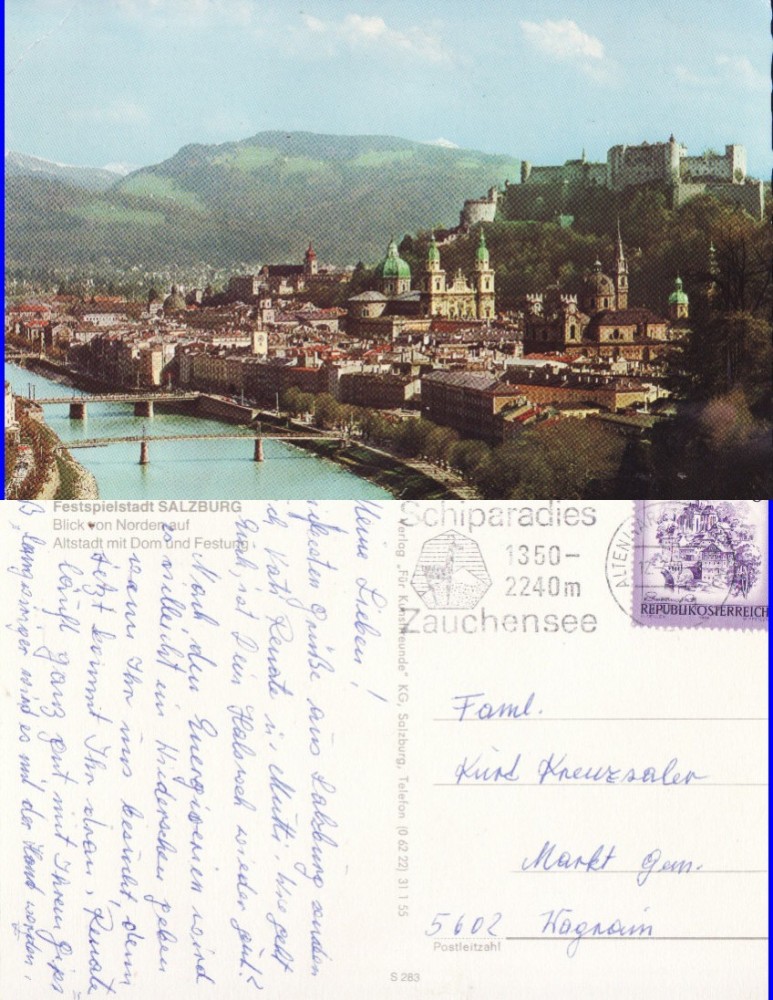 Festspielstadt SALZBURG
Blick von Norden auf
Altstadt mit Dom und Festung
Meine Lieben!
Grüße aus Salzburg senden
Vati Renate u. Mutti. Wie geht
Euch, ist Dein Halsweh wieder gut?
Nach den Energieferien wird
es vielleicht ein Wiedersehen geben
wenn Ihr uns besucht, denn
jetzt kommt Ihr dran. Renate
läuft ganz gut mit Ihrem Gips
langsamer wird es mit der Hand werden.
Verlag „Für Kunstfreunde" KG, Salzburg, Telefon (0 62 22) 31 1 55
Schiparadies
1350-
2240m
Zauchensee
ALTENMARKT
REPUBLIK ÖSTERREICH
Faml.
Kurt Kreuzsaler
Markt Gem.
5602 Wagrain
Postleitzahl
S 283